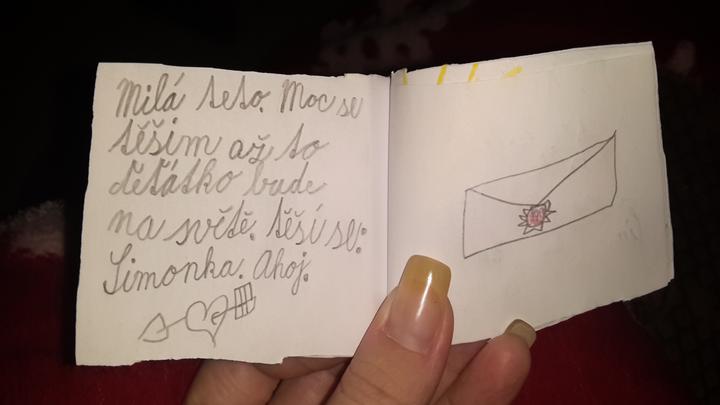 Milá teto. Moc se
těším až to
děťátko bude
na světě. těší se:
Simonka. Ahoj.